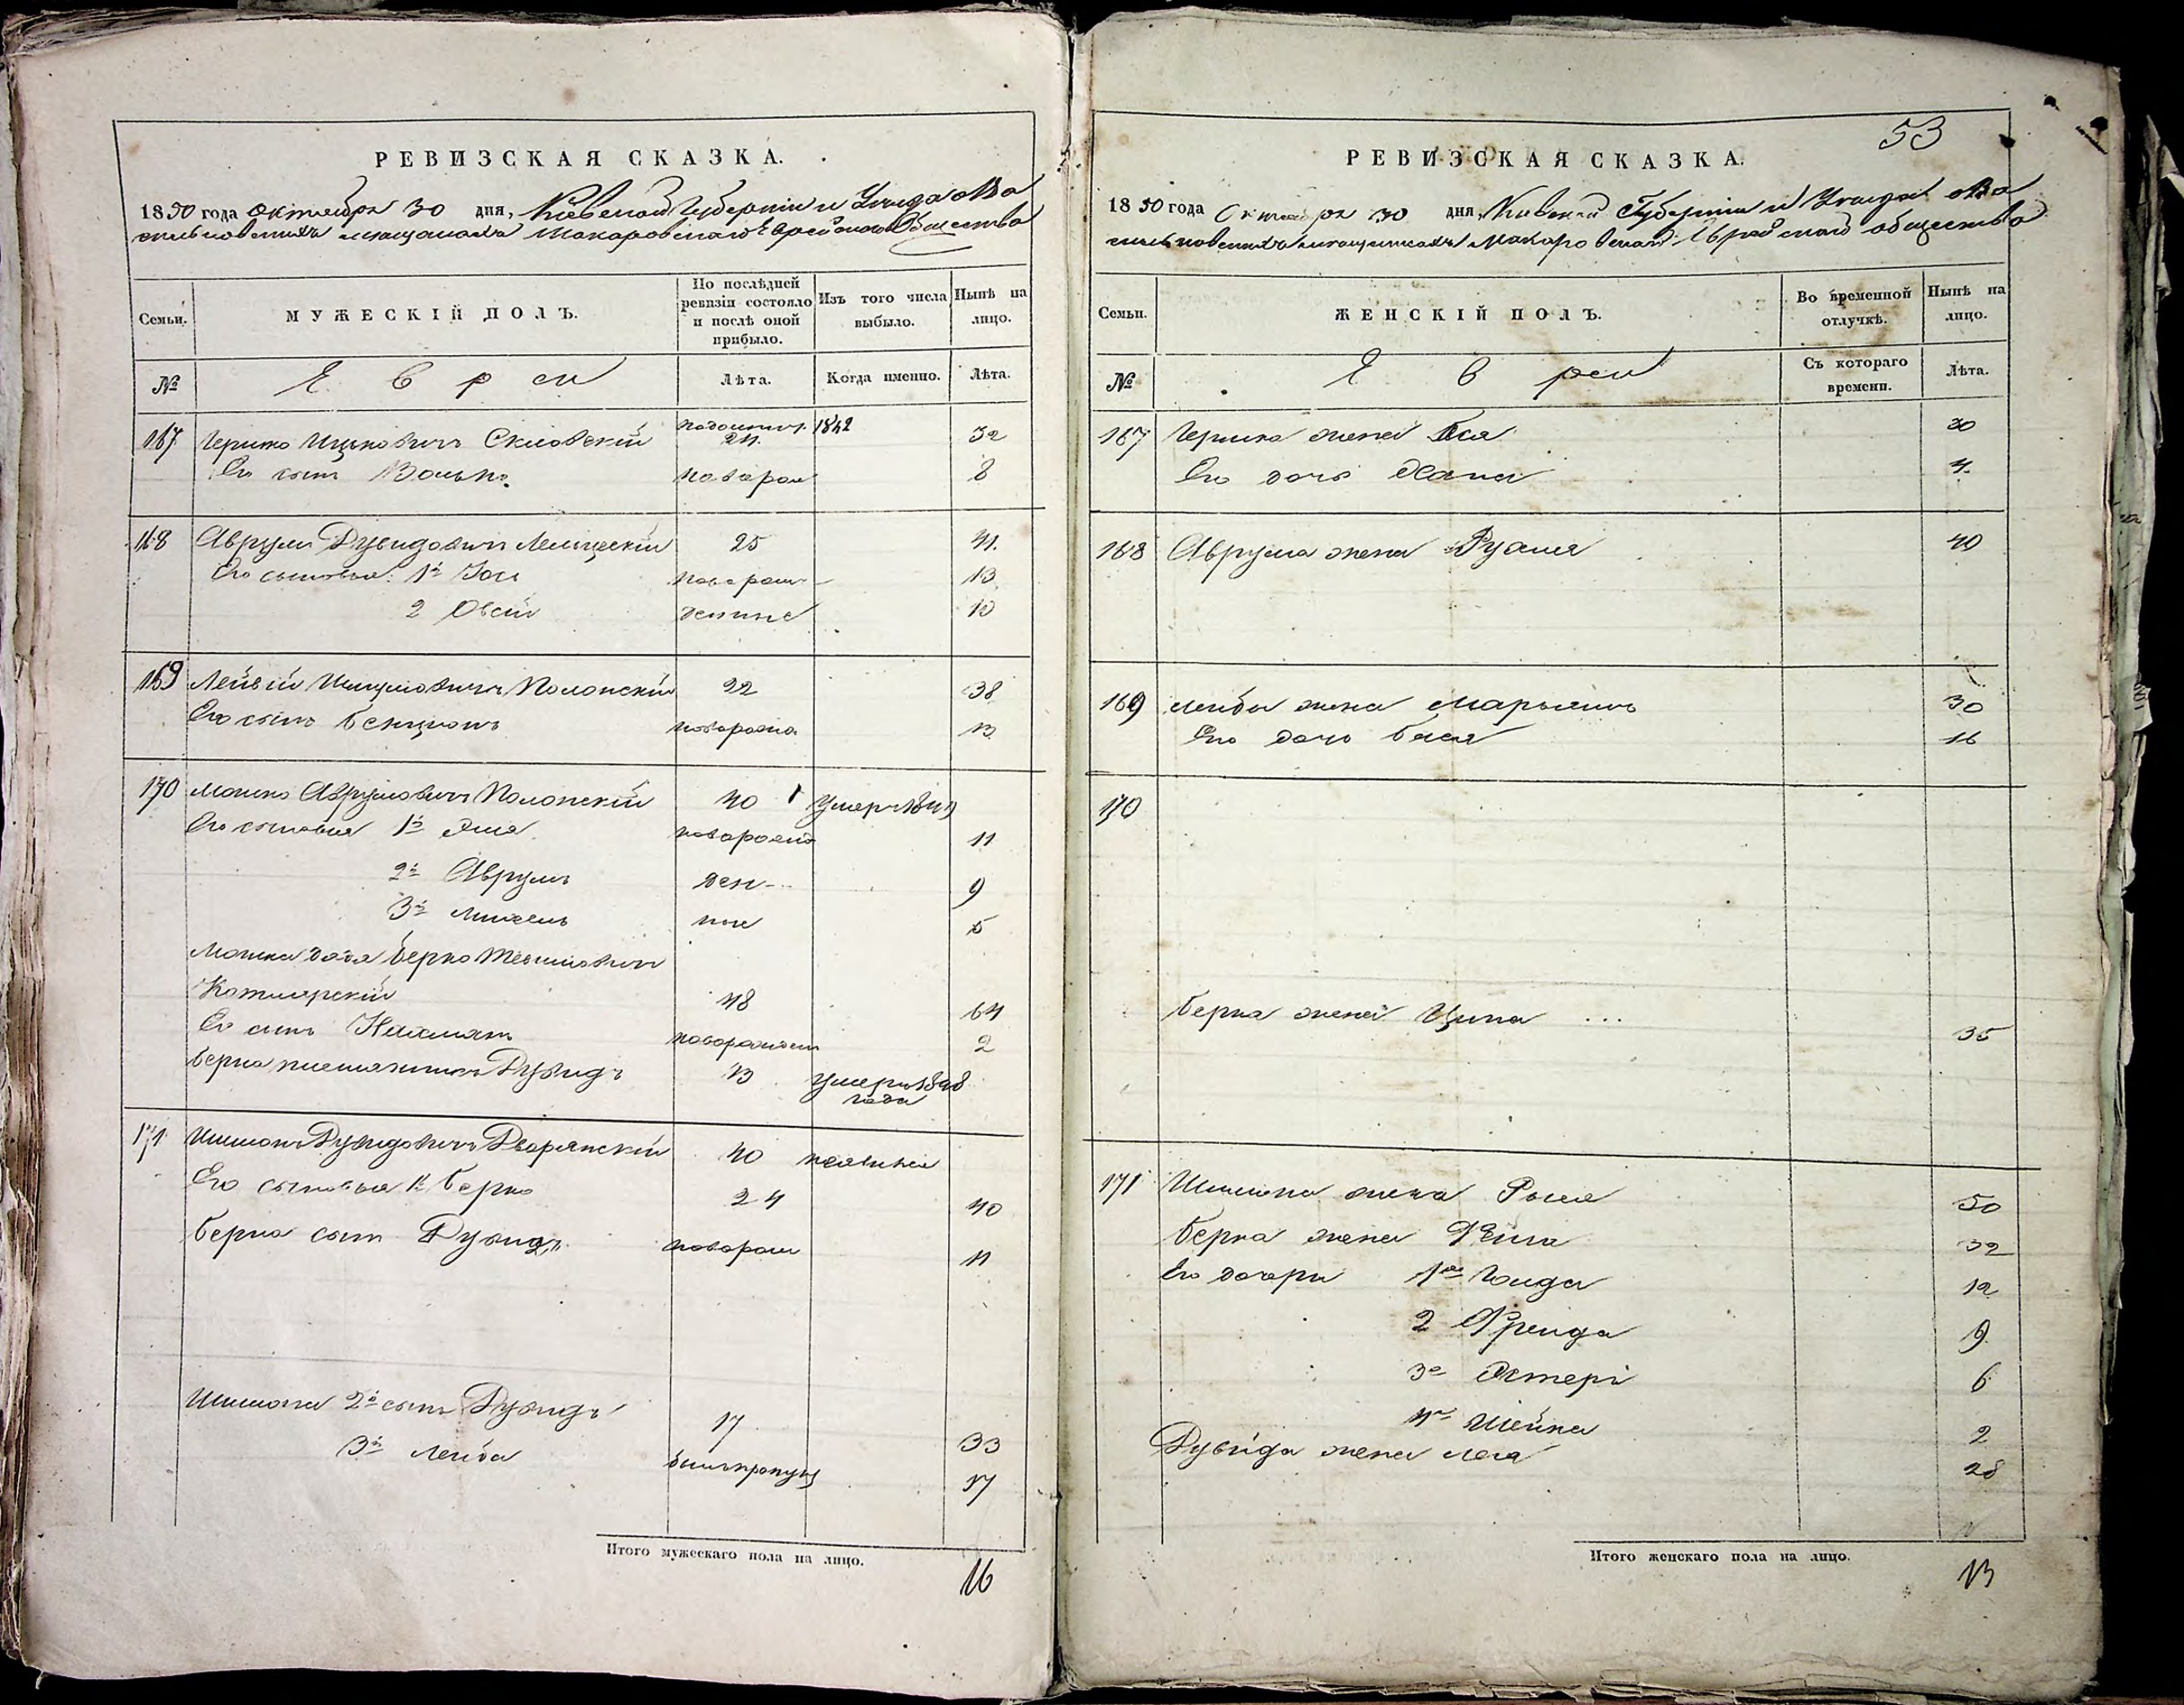 РЕВИЗСКАЯ СКАЗКА.
1850 года Октября 30 дня, Киевской Губерніи и Уезда о Ва
сильковскихъ мещанахъ Макаровскаго Еврейскаго Общества
Семьи.
МУЖЕСКІЙ ПОЛЪ.
По послѣдней ревизіи состояло и послѣ оной прибыло.
Изъ того числа выбыло.
Нынѣ на лицо.
№
Евреи
Лѣта.
Когда именно.
Лѣта.
167 Гершко Ицковичъ 24 1842 32
Его сынъ Волько новорож 8
168 Аврумъ Дувидовичъ 25 41
Его сыновья 1й Іось новорож 13
2 Овсій 10
169 Лейбій Шмулёвичъ Полонскій 22 38
Его сынъ Бенционъ новорожд 13
170 Мошко Аврумовичъ Полонскій 40 умеръ
Его сыновья 1й новорожд 11
2й Аврумъ 9
3й 5
Мошка дядя Берко
Котлярскій 48 64
Его сынъ Нахманъ новорожден 2
Берка племянникъ Дувидъ 13 умеръ 1848 года
171 Шимонъ Дувидовичъ Дворянскій 40
Его сыновья 1й Берко 24 40
Берка сынъ Дувидъ новорож 11
Шимона 2й сынъ Дувидъ 17 33
3й Лейба былъ пропущ 17
Итого мужескаго пола на лицо.
16
53
РЕВИЗСКАЯ СКАЗКА.
1850 года Октября 30 дня, Киевской Губерніи и Уезда о Ва
сильковскихъ мещанахъ Макаровскаго Еврейскаго общества
Семьи.
ЖЕНСКІЙ ПОЛЪ.
Во временной отлучкѣ.
Нынѣ на лицо.
№
Евреи
Съ котораго времени.
Лѣта.
167 Гершка жена Бся 30
Его дочь Хана 4
168 Аврума жена 40
169 Лейбы жена Марьямъ 30
Его дочь Бася 16
170
Берка жена Ципа 35
171 Шимона жена Рыся 50
Берка жена 32
Его дочери 1я 12
2 Фрейда 9
3я Эстеръ 6
4я Шейна 2
Дувида жена Лея 28
Итого женскаго пола на лицо.
13